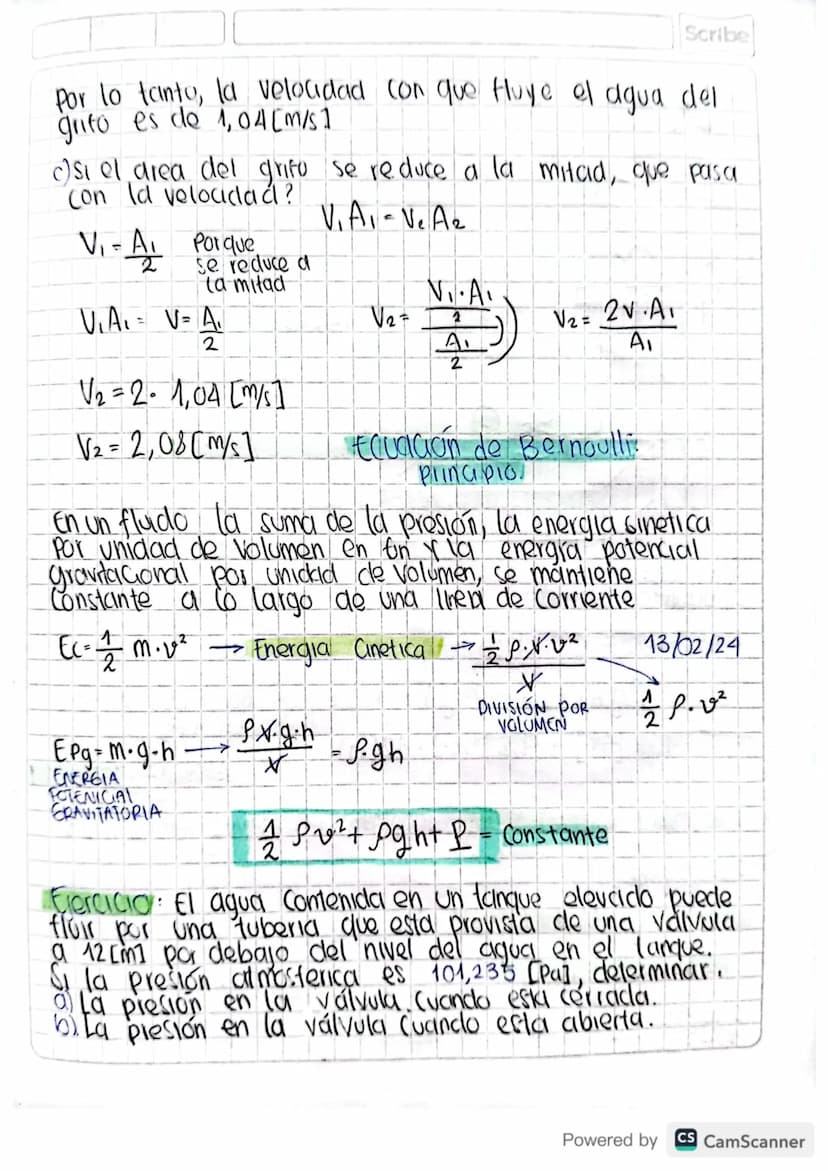 Scribe
Por lo tanto, la velocidad con que fluye el agua del
grifo es de 1,04 [m/s]
c) Si el area del grifo se reduce a la mitad, que pasa
con la velocidad?
V₁A₁ = V₂A₂
V₁ = A₁/2 Porque
se reduce a
la mitad
V₁A₁ = V = A₁/2
V₂ = (V₁·A₁/2)/(A₁/2)
V₂ = 2V·A₁/A₁
V₂ = 2 · 1,04 [m/s]
V₂ = 2,08 [m/s]
Ecuación de Bernoulli:
principio.
En un fludo la suma de la presión, la energia sinetica
por unidad de volumen en fin y la energia potencial
gravitacional por unidad de volumen, se mantiene
constante a lo largo de una linea de corriente
Ec = 1/2 m·v² → Energia Cinetica → (1/2 ρ·V·v²)/V
13/02/24
DIVISIÓN POR
VOLUMEN
1/2 ρ·v²
Epg = m·g·h → (ρV·g·h)/V = ρ·gh
ENERGIA
POTENICIAL
GRAVITATORIA
1/2 ρv² + ρgh + P = Constante
Ejercicio: El agua contenida en un tanque elevado puede
fluir por una tuberia que esta provista de una válvula
a 12 [m] por debajo del nivel del agua en el tanque.
Si la presión atmosferica es 101,235 [Pa], determinar.
a) La presión en la válvula. Cuando está cerrada.
b). La presión en la válvula cuando esta abierta.
Powered by CS CamScanner